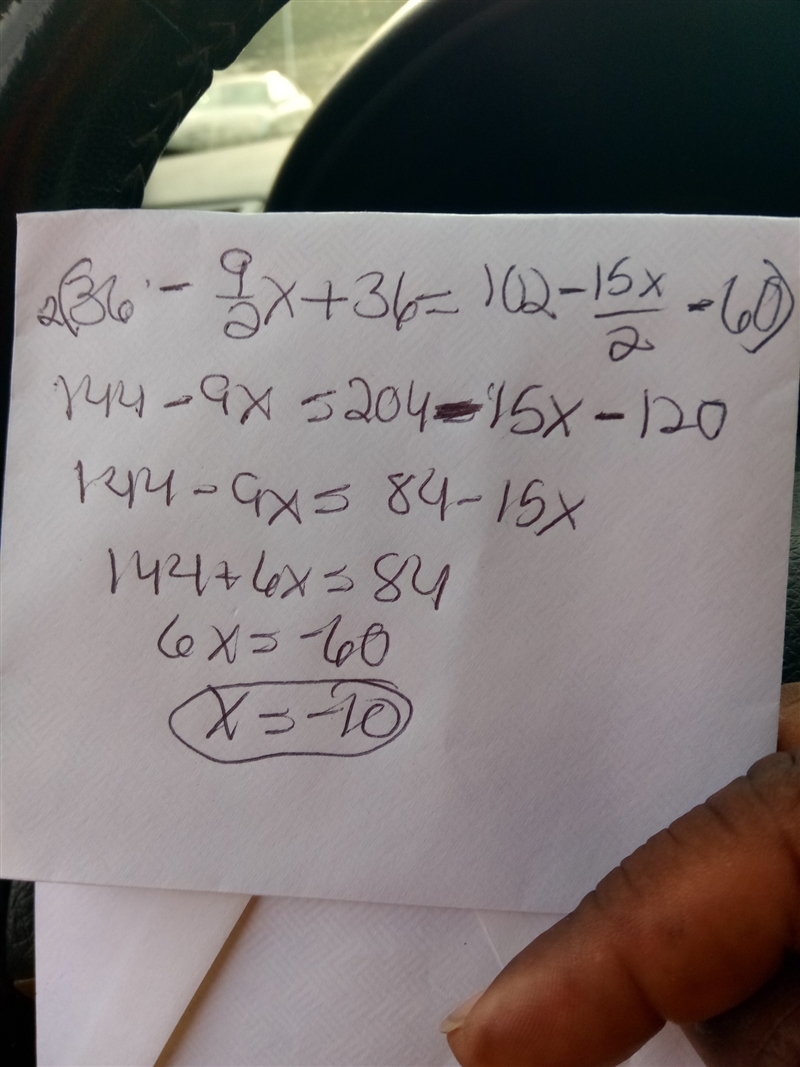 2(36 - 9/2 x + 36 = 102 - 15x/2 - 60)
144 - 9x = 204 - 15x - 120
144 - 9x = 84 - 15x
144 + 6x = 84
6x = -60
x = -10